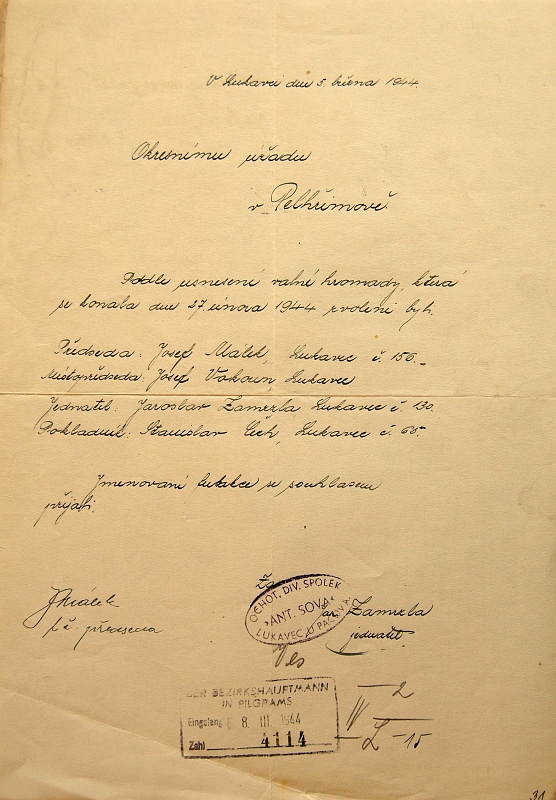 V Lukavci dne 5. března 1944.
Okresnímu úřadu
v Pelhřimově.
Podle usnesení valné hromady, která
se konala dne 27. února 1944 zvoleni byli:
Předseda: Josef Málek, Lukavec č. 156.-
Místopředseda: Josef Vokoun, Lukavec
Jednatel: Jaroslav Zamrzla Lukavec č. 130.
Pokladník: Stanislav Čech, Lukavec č. 65.
Jmenovaní funkce se souhlasem
přijali.
Za
OCHOT. DIV. SPOLEK
„ANT. SOVA“
LUKAVEC U PACOVA
JMálek
t. č. předseda
Jar. Zamrzla
jednatel
DER BEZIRKSHAUPTMANN
IN PILGRAMS
Eingelang 8. III. 1944
Zahl 4114
IV - 2
2 - 15
31